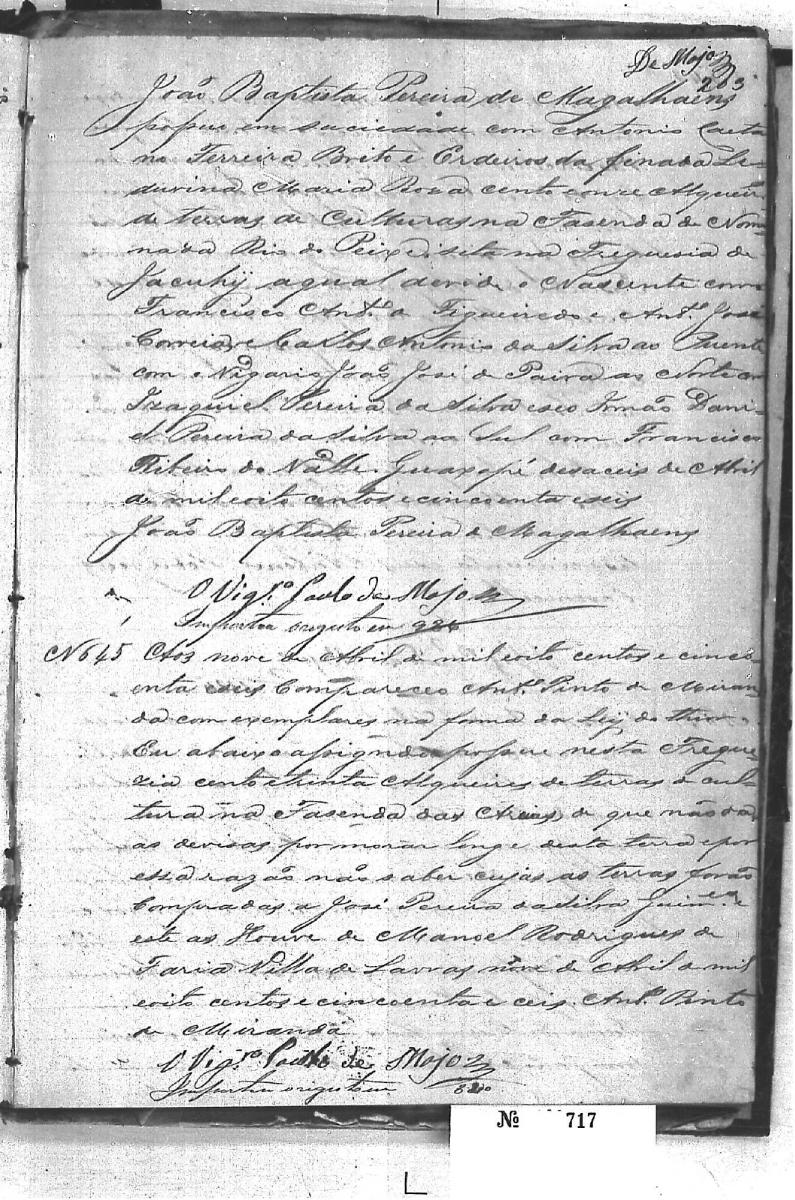 De Mojo
203
João Baptista Pereira de Magalhaens
posue em suciedade com Antonio Caeta
no Ferreira Brito e Erdeiros da finada Le
duvina Maria Roza cento e onze Alqueir
de terras de Culturas na Fasenda de Nom
nada Rio do Peixe sita na Freguesia de
Jacuhÿ a qual devide o Nascente com
Francisco Antº. de Figueiredo e Antº. José
Correia e Carlos Antonio da Silva ao Puente
com o Vigario João José de Paiva ao Norte com
Izaquiel Pereira da Silva e seo Irmão Dani
el Pereira da Silva ao Sul com Francisco
Ribeiro do Valle. Guaxopé desaceis de Abril
de mil oito centos e cincoenta e seis
João Baptista Pereira de Magalhaens
O Vigrº. Paulo de Mojo
Importou o registo em
Nº 645 Aos nove de Abril de mil oito centos e cinco
enta e seis Compareceo Antº. Pinto de Miran
da com exemplares na forma da Ley do thior.
Eu abaixo asignado posue nesta Fregue
zia cento e trinta Alqueires de terras de cul
tura na Fasenda das Areias, de que não da
as devisas por morar longe desta terra e por
essa razão não saber cujas as terras forão
Compradas a José Pereira da Silva Guimes. e
este as Houve de Manoel Rodrigues de
Faria Villa de Lavras nove de Abril de mil
oito centos e cincoenta e ceis. Antº. Pinto
de Miranda
O Vigrº. Paulo de Mojo
Importou o registo em
Nº 717
L